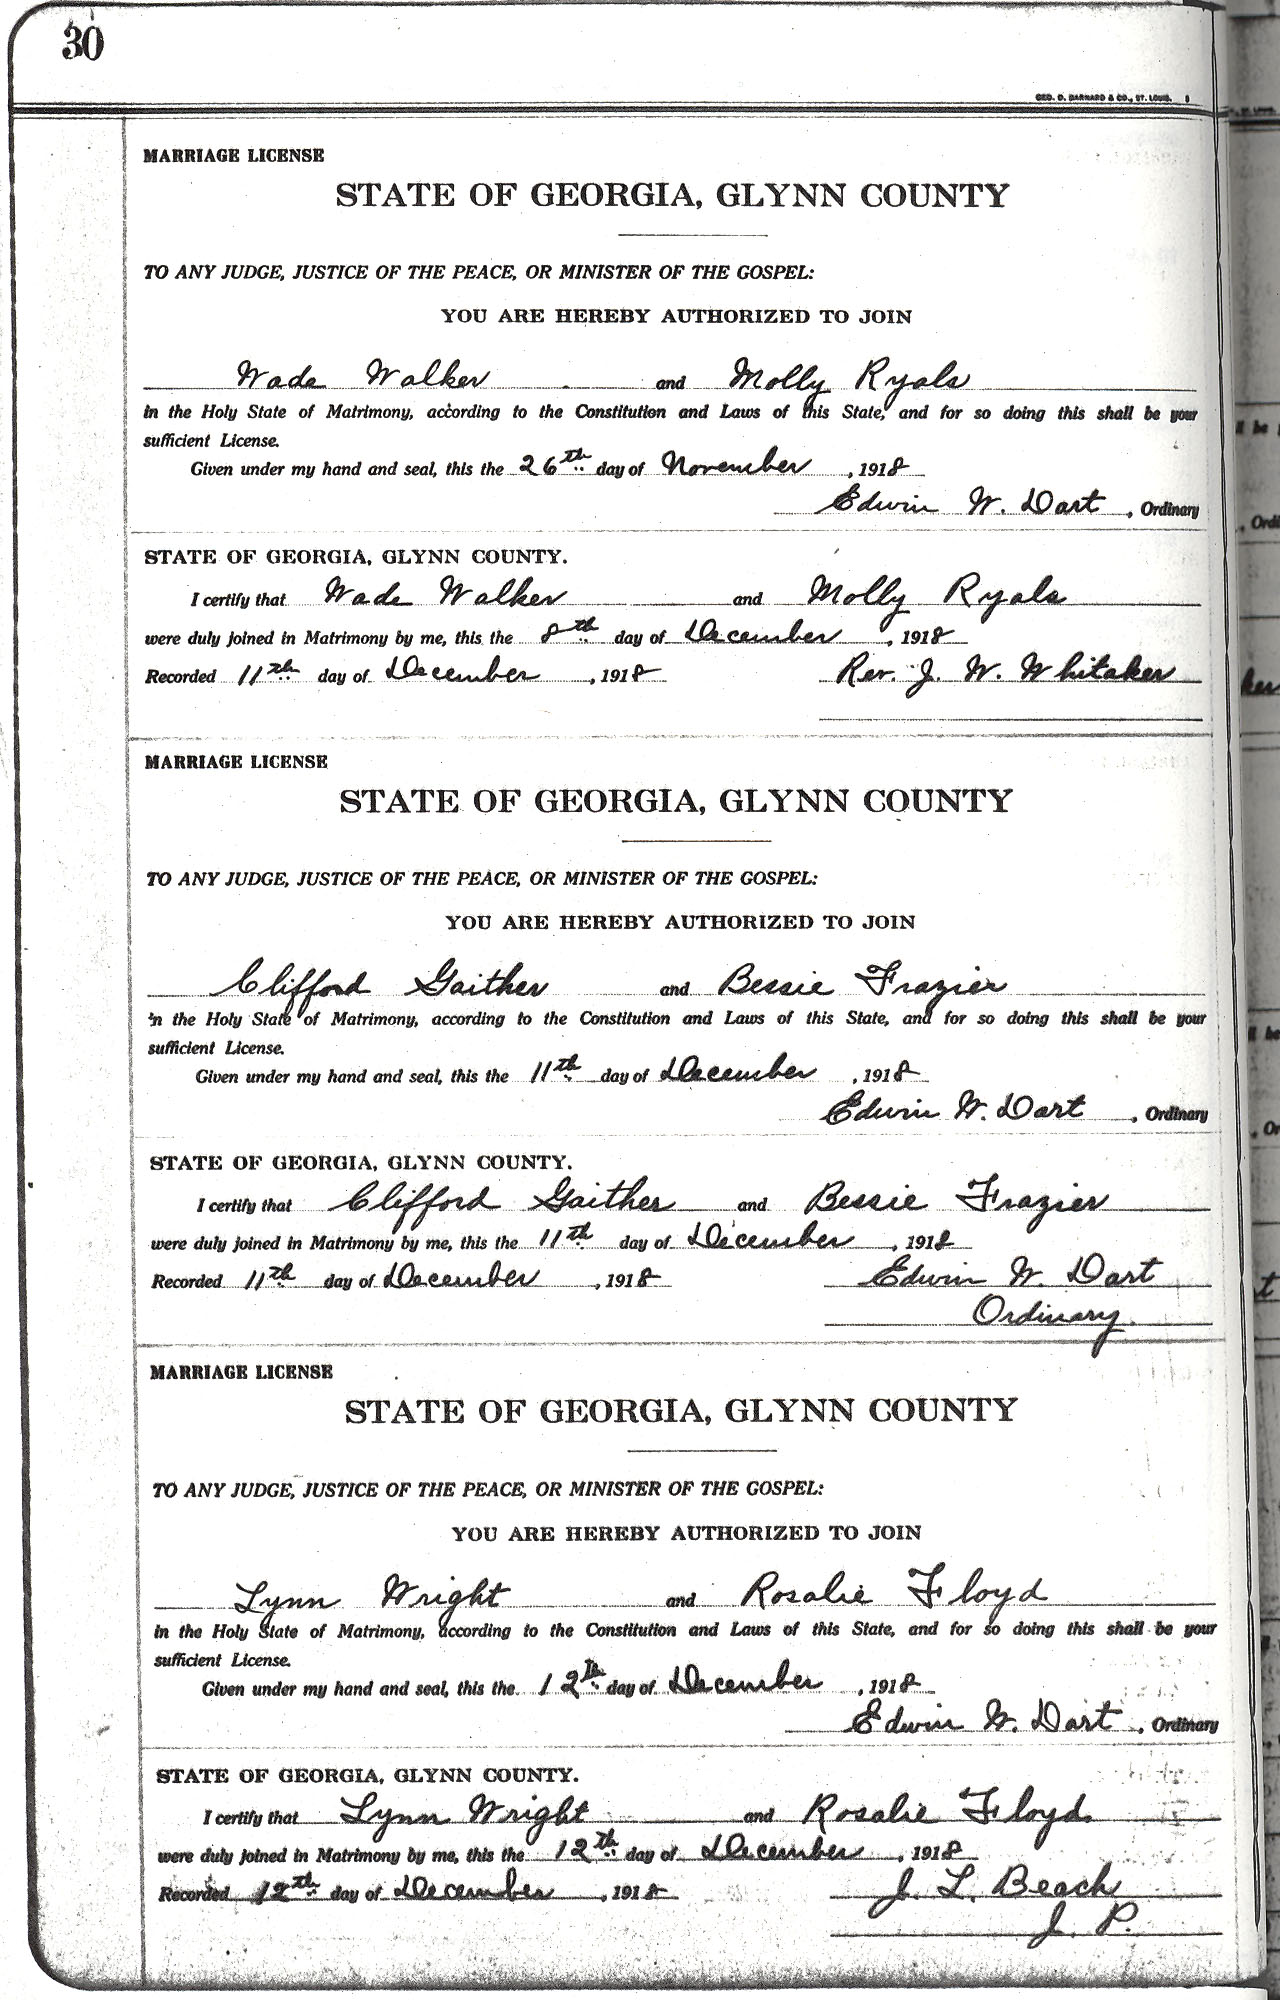 30
GEO. D. BARNARD & CO., ST. LOUIS.
MARRIAGE LICENSE
STATE OF GEORGIA, GLYNN COUNTY
TO ANY JUDGE, JUSTICE OF THE PEACE, OR MINISTER OF THE GOSPEL:
YOU ARE HEREBY AUTHORIZED TO JOIN
Wade Walker and Molly Ryals
in the Holy State of Matrimony, according to the Constitution and Laws of this State, and for so doing this shall be your
sufficient License.
Given under my hand and seal, this the 26th day of November, 1918
Edwin W. Dart, Ordinary
STATE OF GEORGIA, GLYNN COUNTY.
I certify that Wade Walker and Molly Ryals
were duly joined in Matrimony by me, this the 8th day of December, 1918
Recorded 11th day of December, 1918 Rev. J. W. Whitaker
MARRIAGE LICENSE
STATE OF GEORGIA, GLYNN COUNTY
TO ANY JUDGE, JUSTICE OF THE PEACE, OR MINISTER OF THE GOSPEL:
YOU ARE HEREBY AUTHORIZED TO JOIN
Clifford Gaither and Bessie Frazier
in the Holy State of Matrimony, according to the Constitution and Laws of this State, and for so doing this shall be your
sufficient License.
Given under my hand and seal, this the 11th day of December, 1918
Edwin W. Dart, Ordinary
STATE OF GEORGIA, GLYNN COUNTY.
I certify that Clifford Gaither and Bessie Frazier
were duly joined in Matrimony by me, this the 11th day of December, 1918
Recorded 11th day of December, 1918 Edwin W. Dart
Ordinary.
MARRIAGE LICENSE
STATE OF GEORGIA, GLYNN COUNTY
TO ANY JUDGE, JUSTICE OF THE PEACE, OR MINISTER OF THE GOSPEL:
YOU ARE HEREBY AUTHORIZED TO JOIN
Lynn Wright and Rosalie Floyd
in the Holy State of Matrimony, according to the Constitution and Laws of this State, and for so doing this shall be your
sufficient License.
Given under my hand and seal, this the 12th day of December, 1918
Edwin W. Dart, Ordinary
STATE OF GEORGIA, GLYNN COUNTY.
I certify that Lynn Wright and Rosalie Floyd
were duly joined in Matrimony by me, this the 12th day of December, 1918
Recorded 12th day of December, 1918 J. L. Beach
J. P.